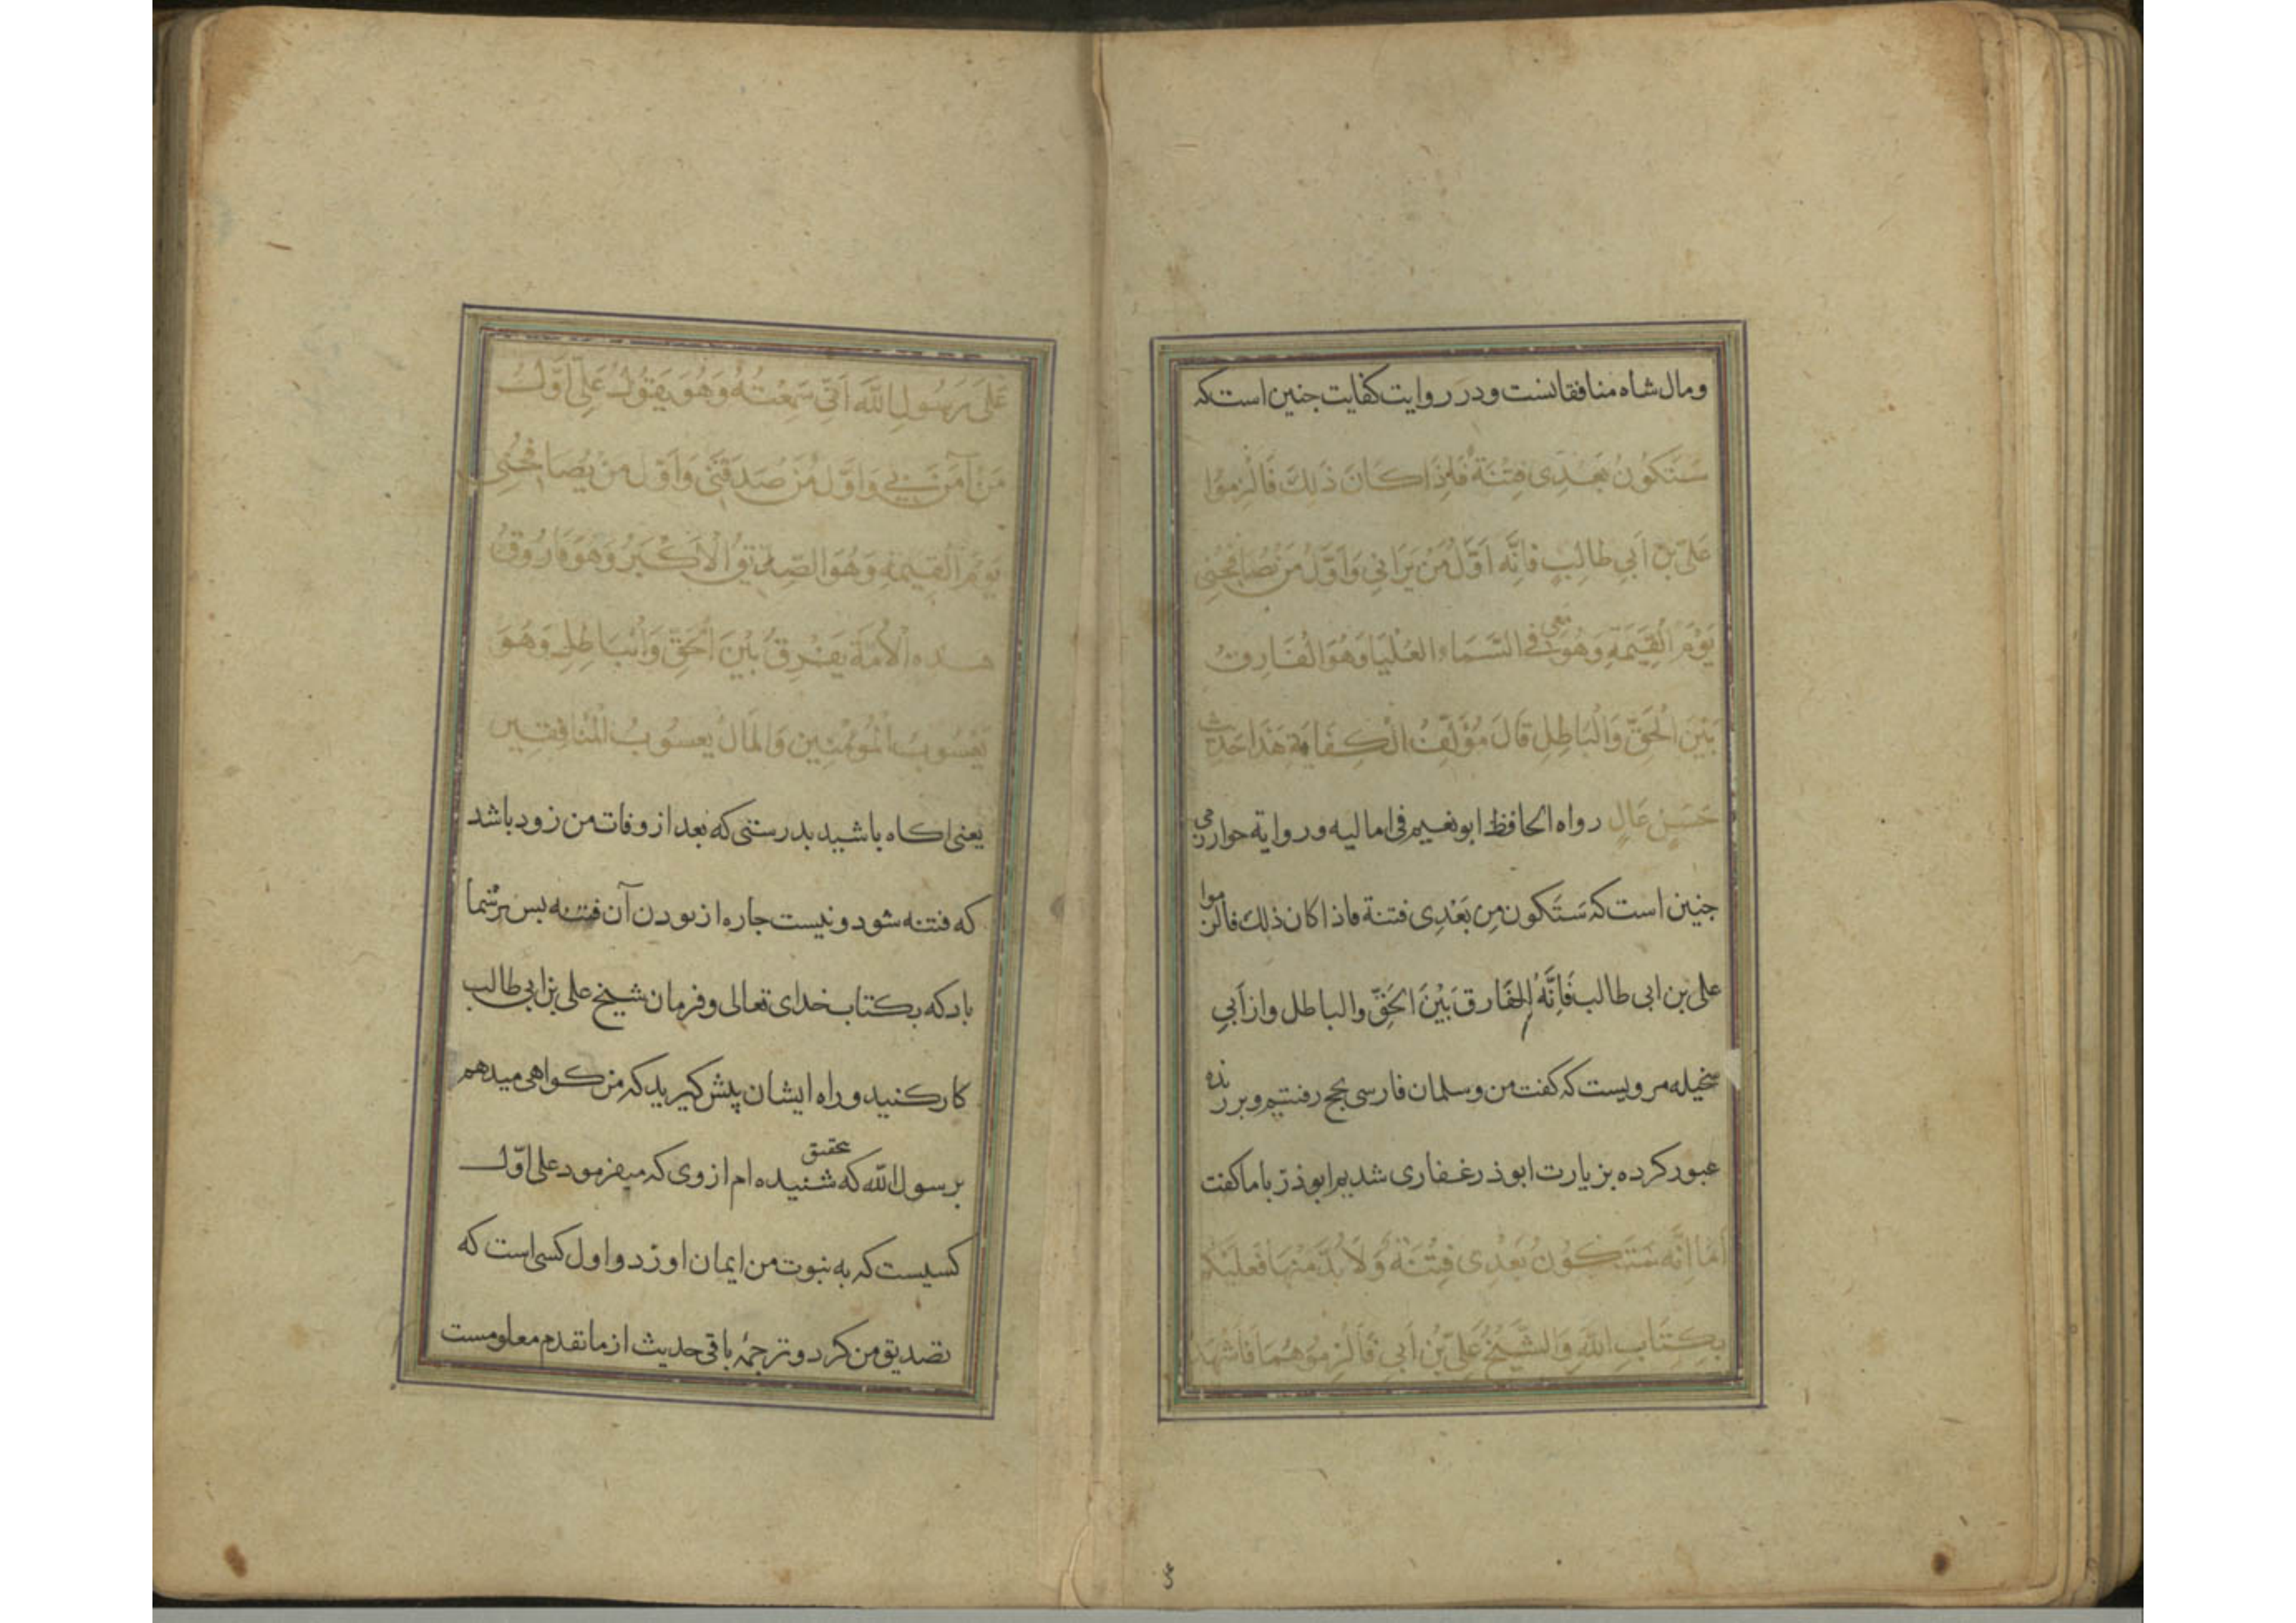 ومال شاه منافقانست ودر روایت کفایت جنین است که
سَتَكُونُ بَعْدِی فِتْنَةٌ فَإِذَا كَانَ ذَلِكَ فَالْزِمُوا
عَلیَّ بْنَ اَبِی طالِبٍ فَاِنَّه اَوَّلُ مَنْ یَرَانِی وَاَوَّلُ مَنْ یُصَافِحُنِی
یَوْمَ الْقِیمَةِ وَهُوَ معی فی السَّمَاءِ العُلْیَا وَهُوَ الْفَارِقُ
بَیْنَ الْحَقِّ وَالْبَاطِلِ قَالَ مُؤَلِّفُ الْكِفَایَةِ هَذَا حَدیث
حَسَنٌ عَالٍ رواه الحافظ ابو نعیم فی امالیه و روایة خوارزمی
جنین است که سَتَكون مِن بَعْدِی فتنة فاذا كان ذلك فالزموا
علی بن ابی طالب فَاِنَّهُ الفَارق بَیْنَ الحَقِّ والباطل واز اَبی
سخیله مرویست که کفت من وسلمان فارسی بحج رفتیم وبربذه
عبور کرده بزیارت ابوذر غفاری شدیم ابوذرّ باما کفت
اَمَا اِنَّه سَتَكُونُ بَعْدِی فِتْنَةٌ وَلَا بُدَّ مِنْهَا فَعلَیْكُم
بِكِتَابِ اللهِ وَالشَّیْخِ عَلِیِّ بْنِ اَبِی فَالْزِمُوهُمَا فَاَشْهَدُ
عَلَی رَسُولِ اللهِ اَنِّی سَمِعْتُهُ وَهُوَ یَقُولُ عَلِی اَوَّلُ
مَنْ آمَنَ بِی وَاَوَّلُ مَنْ صَدَقَنی وَاَوَّلُ مَنْ یُصَافِحُنِی
یَوْمَ الْقِیمَةِ وَهُوَ الصِّدِّیقُ الْاَكْبَرُ وَهُوَ فَارُوقُ
هذه الْاُمَّة یَفْرِقُ بَیْنَ الْحَقِّ وَالْبَاطِلِ وَهُوَ
یَعْسُوبُ الْمُؤْمِنِین وَالْمَالُ یعسُوبُ الْمُنَافِقِین
یعنی اکاه باشید بدرستی که بعد از وفات من زود باشد
که فتنه شود ونیست جاره از بودن آن فتنه بس برشما
باد که بکتاب خدای تعالی وفرمان شیخ علی بن ابی طالب
کار کنید وراه ایشان پیش کیرید که من کواهی میدهم
بر رسول الله که بتحقیق شنیده ام از وی که میفرمود علی اوّل
کسیست که به نبوت من ایمان اورد و اول کسی است که
تصدیق من کرد وترجمۀ باقی حدیث از ما تقدم معلومست